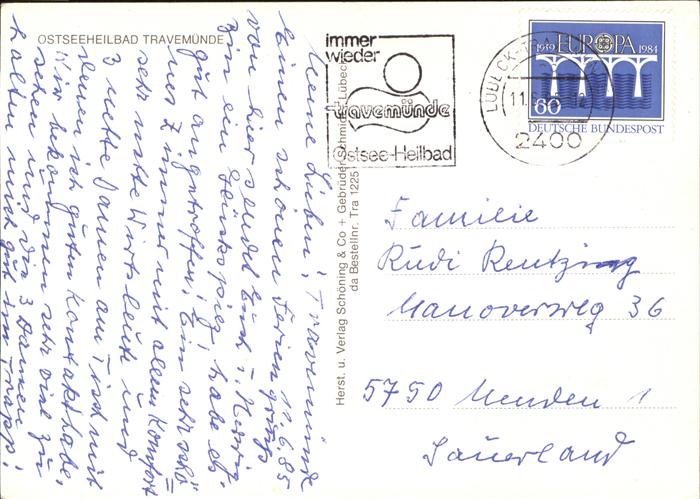 OSTSEEHEILBAD TRAVEMÜNDE
immer
wieder
travemünde
Ostsee-Heilbad
LÜBECK-TRA
11.6.
2400
1959 EUROPA 1984
60
DEUTSCHE BUNDESPOST
Meine Lieben, Travemünde
11.6.85
Einen schönen Feriengruß
von hier sendet Euch
Bin ein Glückspilz, habe es
gut angetroffen. Ein sehr schö=
nes Zimmer mit allem Komfort
sehr nette Wirtsleute und
3 nette Damen am Tisch mit
denen ich guten Kontakt habe.
Wir bekommen sehr viel zu
sehen und die 3 Damen
halten mich gut im Trapp!
Herst. u. Verlag Schöning & Co + Gebrüder Schmidt, Lübeck
da Bestellnr. Tra 1225
Familie
Rudi Rentzing
Hanoverweg 36
5750 Menden 1
Sauerland